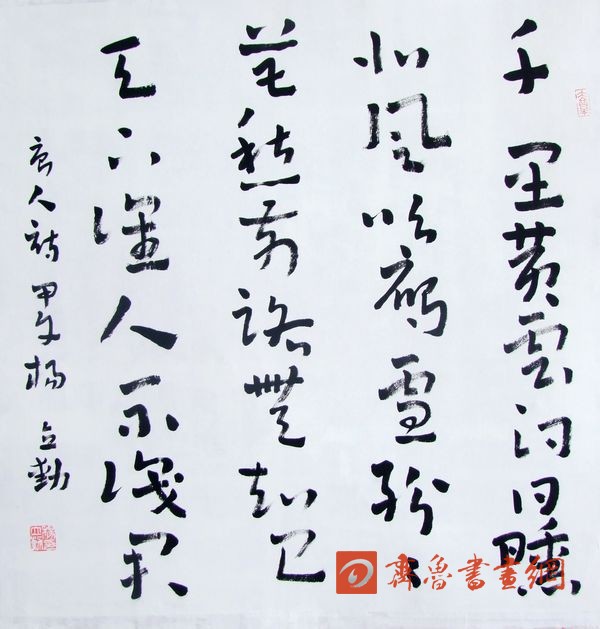 千里黄雲白日曛
北風吹雁雪紛々
莫愁前路無知己
天下誰人不識君
唐人詩 甲 楊立勤
齊魯書畫網